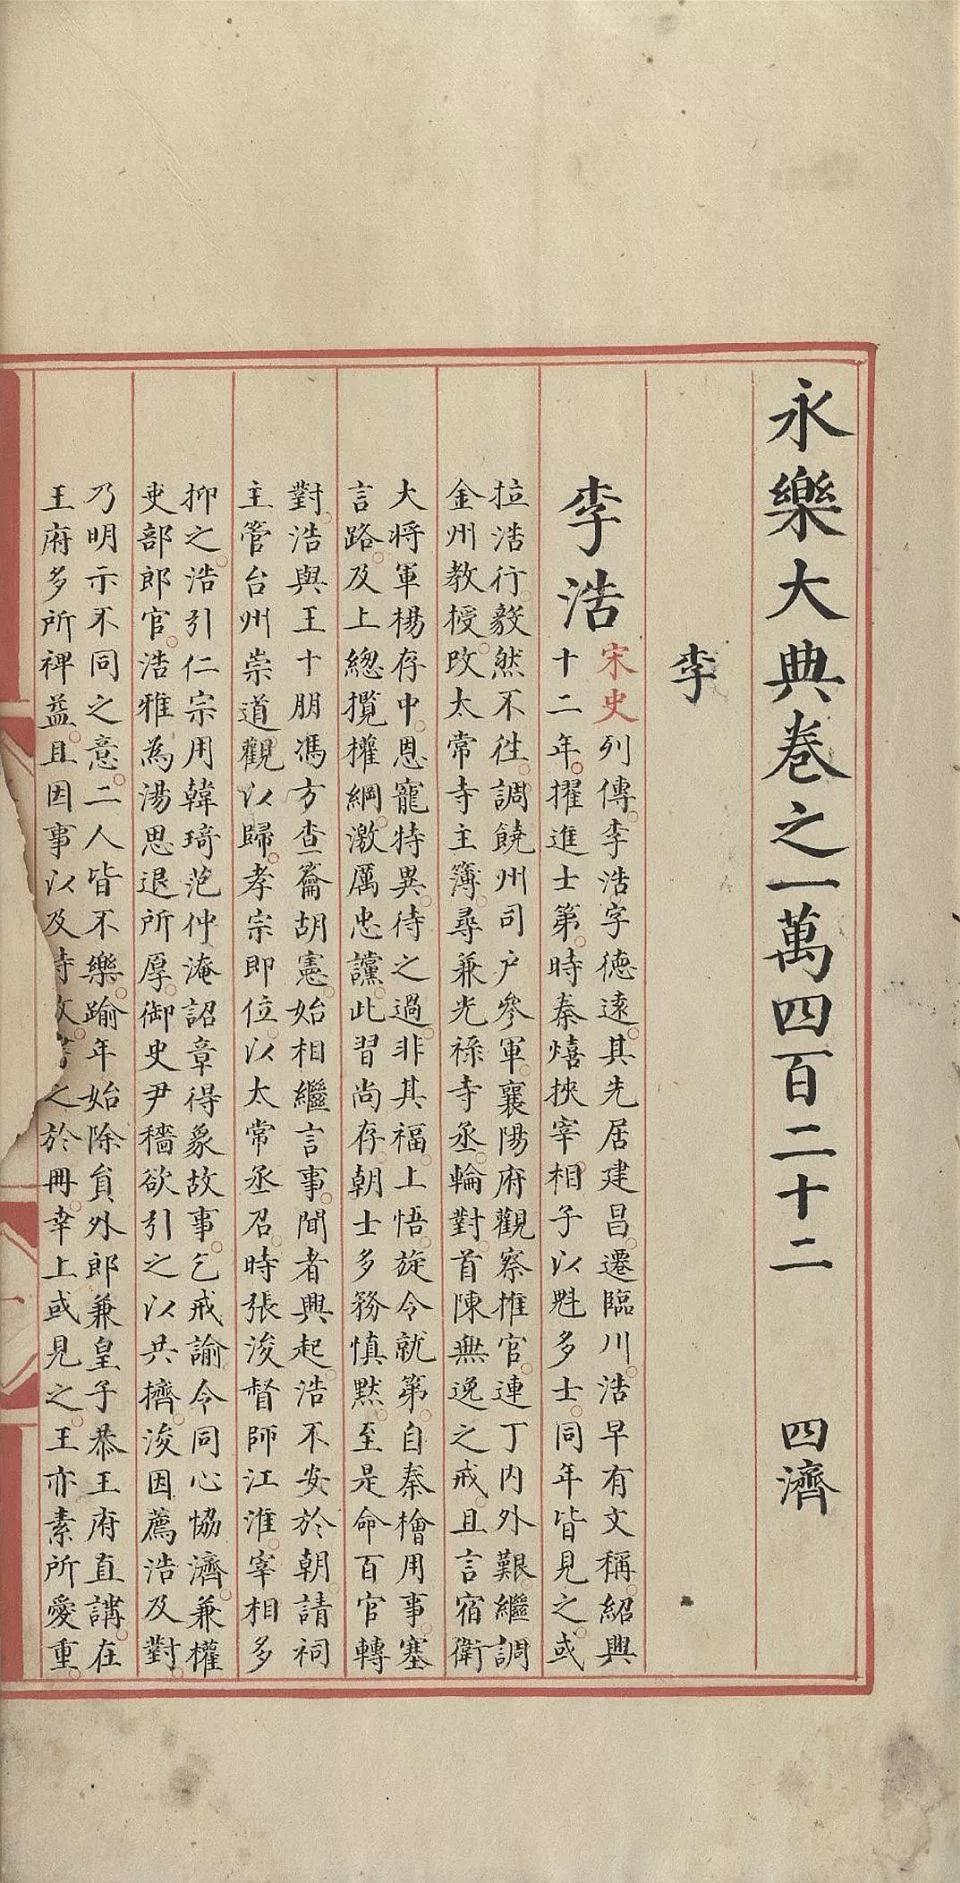 永樂大典卷之一萬四百二十二　四濟
李
李浩
宋史列傳李浩字德遠其先居建昌遷臨川浩早有文稱紹興
十二年擢進士第時秦熺挾宰相子以魁多士同年皆見之或
拉浩行毅然不往調饒州司户參軍襄陽府觀察推官連丁內外艱繼調
金州教授改太常寺主簿尋兼光祿寺丞輪對首陳無逸之戒且言宿衛
大將軍楊存中恩寵特異待之過非其福上悟旋令就第自秦檜用事塞
言路及上總攬權綱激厲忠讜此習尚存朝士多務慎默至是命百官轉
對浩與王十朋馮方查籥胡憲始相繼言事聞者興起浩不安於朝請祠
主管台州崇道觀以歸孝宗即位以太常丞召時張浚督師江淮宰相多
抑之浩引仁宗用韓琦范仲淹詔章得象故事乞戒諭令同心協濟兼權
吏部郎官浩雅為湯思退所厚御史尹穡欲引之以共擠浚因薦浩及對
乃明示不同之意二人皆不樂踰年始除貟外郎兼皇子恭王府直講在
王府多所裨益且因事以及時之於冊幸上或見之王亦素所愛重